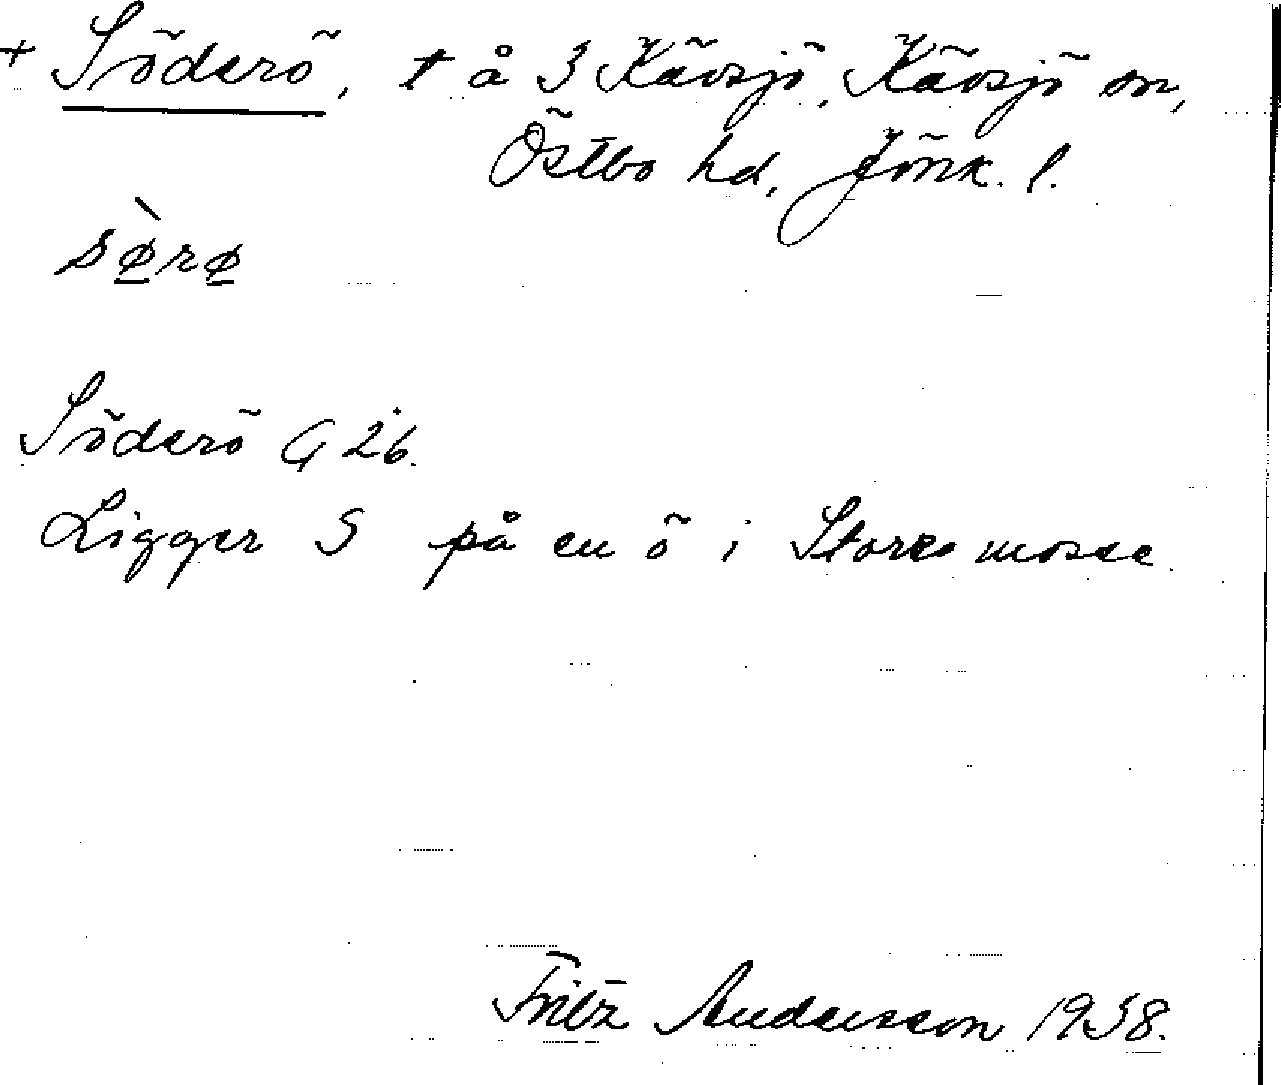 + Söderö, t å 3 Kävsjö, Kävsjö sn,
Östbo hd, Jönk. l.
sø̀rø
Söderö G 26.
Ligger S på en ö i Store mosse.
Fritz Andersson 1938.